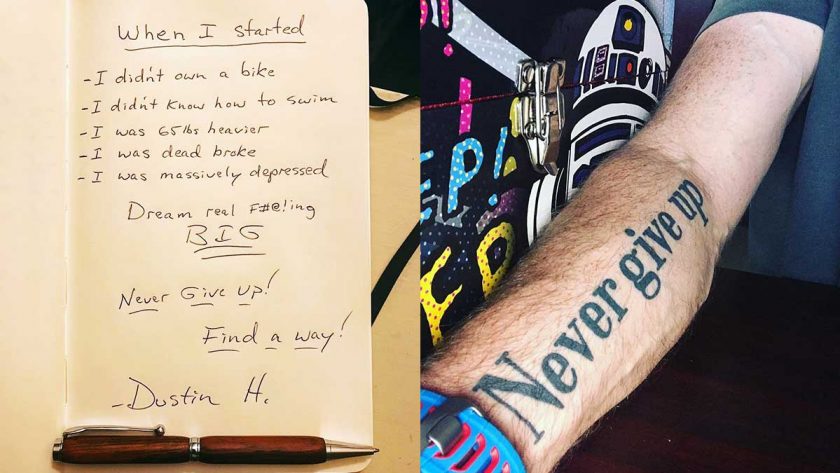 When I started
- I didn't own a bike
- I didn't know how to swim
- I was 65lbs heavier
- I was dead broke
- I was massively depressed
Dream real F#@!ing
BIG
Never Give up!
Find a way!
- Dustin H.
Never give up
EP!